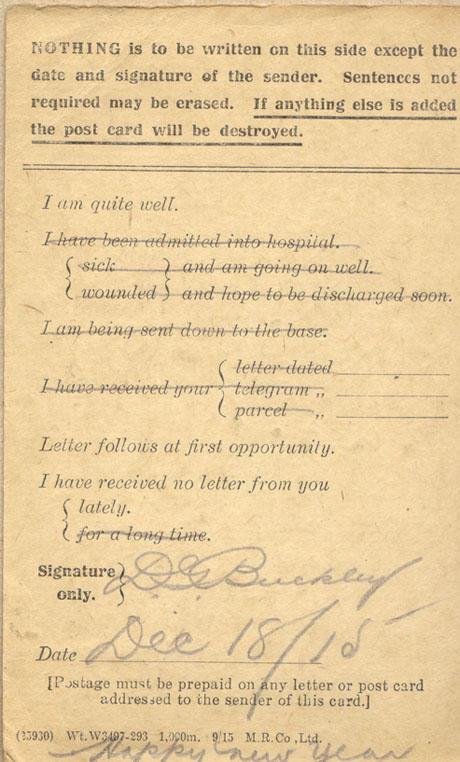 NOTHING is to be written on this side except the
date and signature of the sender. Sentences not
required may be erased. If anything else is added
the post card will be destroyed.
I am quite well.
I have been admitted into hospital.
{ sick } and am going on well.
{ wounded } and hope to be discharged soon.
I am being sent down to the base.
I have received your { letter dated
telegram ,,
parcel ,,
Letter follows at first opportunity.
I have received no letter from you
{ lately.
for a long time.
Signature only. } D. G. Buckley
Date Dec 18/15
[Postage must be prepaid on any letter or post card
addressed to the sender of this card.]
(25930) Wt. W3497-293 1,000m. 9/15 M. R. Co., Ltd.
Happy new Year